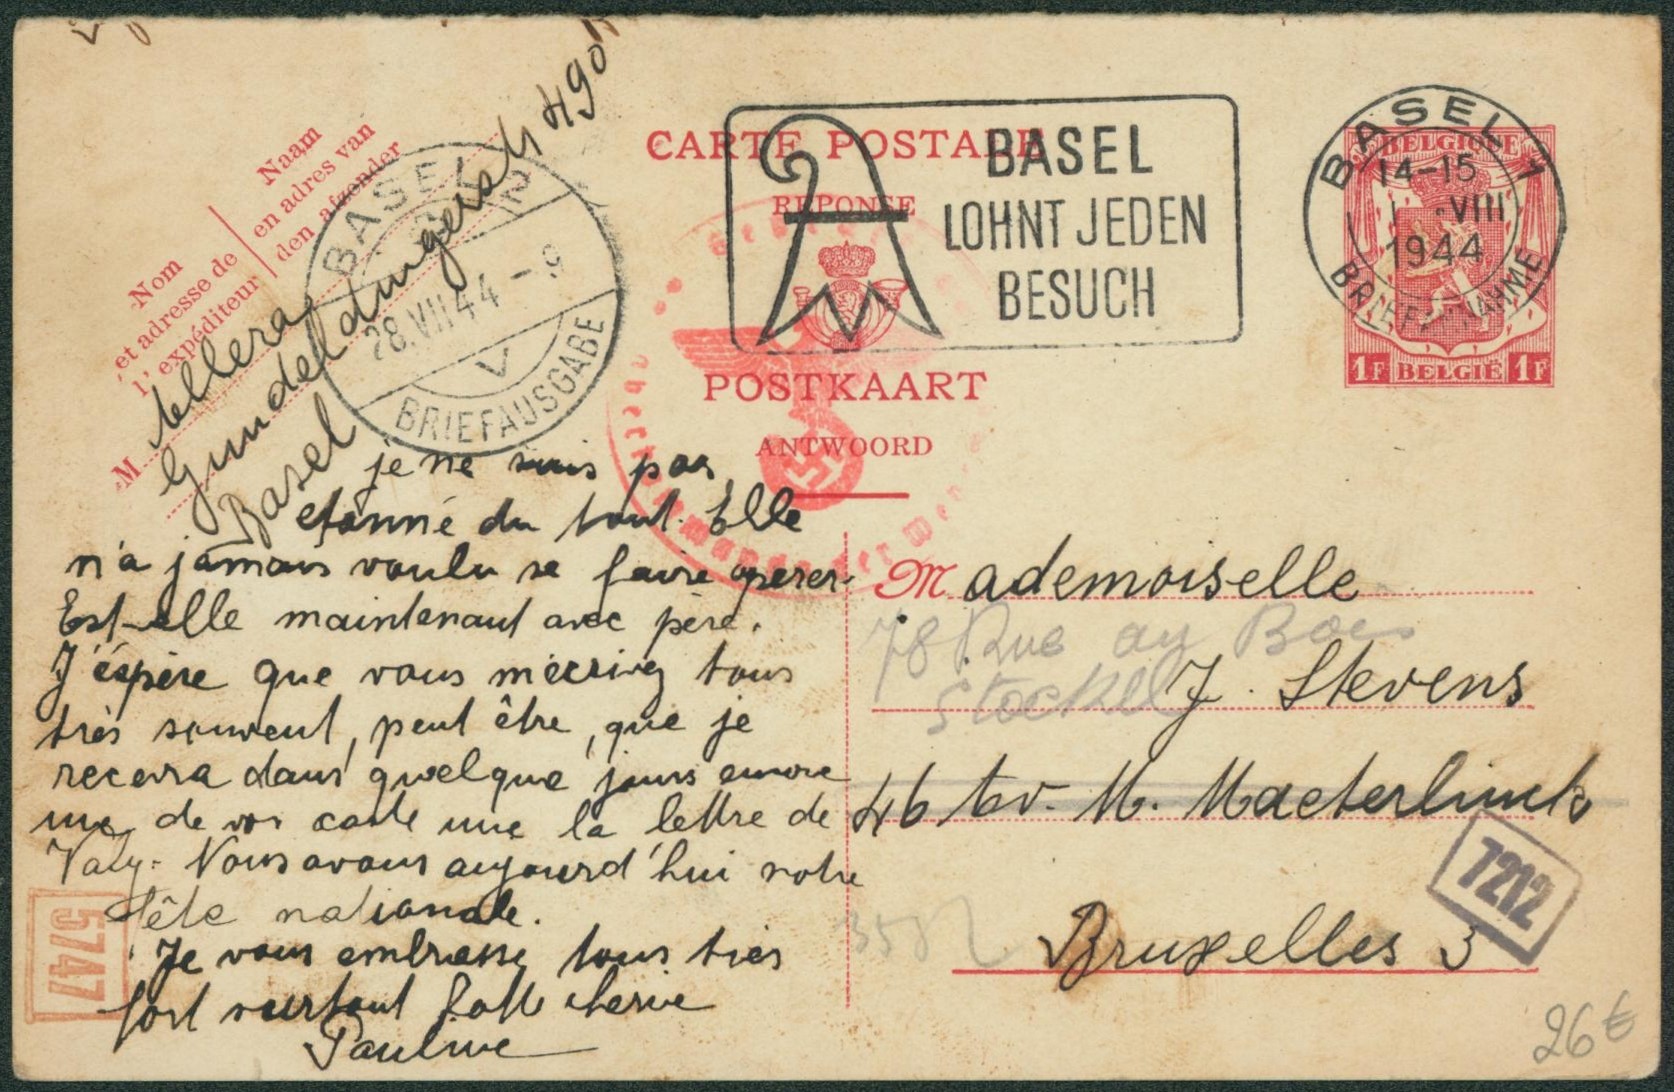 CARTE POSTALE
REPONSE
POSTKAART
ANTWOORD
BASEL
LOHNT JEDEN
BESUCH
BASEL 1
14-15
1 VIII
1944
BRIEFANNAHME
BELGIQUE
1F BELGIË 1F
Naam
en adres van
den afzender
Nom
et adresse de
l'expéditeur
M
Gundeldingerstr 490
Basel
BASEL 2
28.VII 44 - 9
V
BRIEFAUSGABE
je ne suis pas
étonné du tout. Elle
n'a jamais voulu se faire opérer.
Est-elle maintenant avec père.
J'éspère que vous m'écrivez tous
très souvent, peut être, que je
recevra dans quelque jours encore
une de vos carte une la lettre de
Valy. Nous avons aujourd'hui notre
fête nationale.
Je vous embrasse tous très
fort surtout cherie
Pauline
Mademoiselle
78 Rue au Bois
Stockel
J. Stevens
46 Av. M. Maeterlinck
Bruxelles 3
7212
5747
26 €